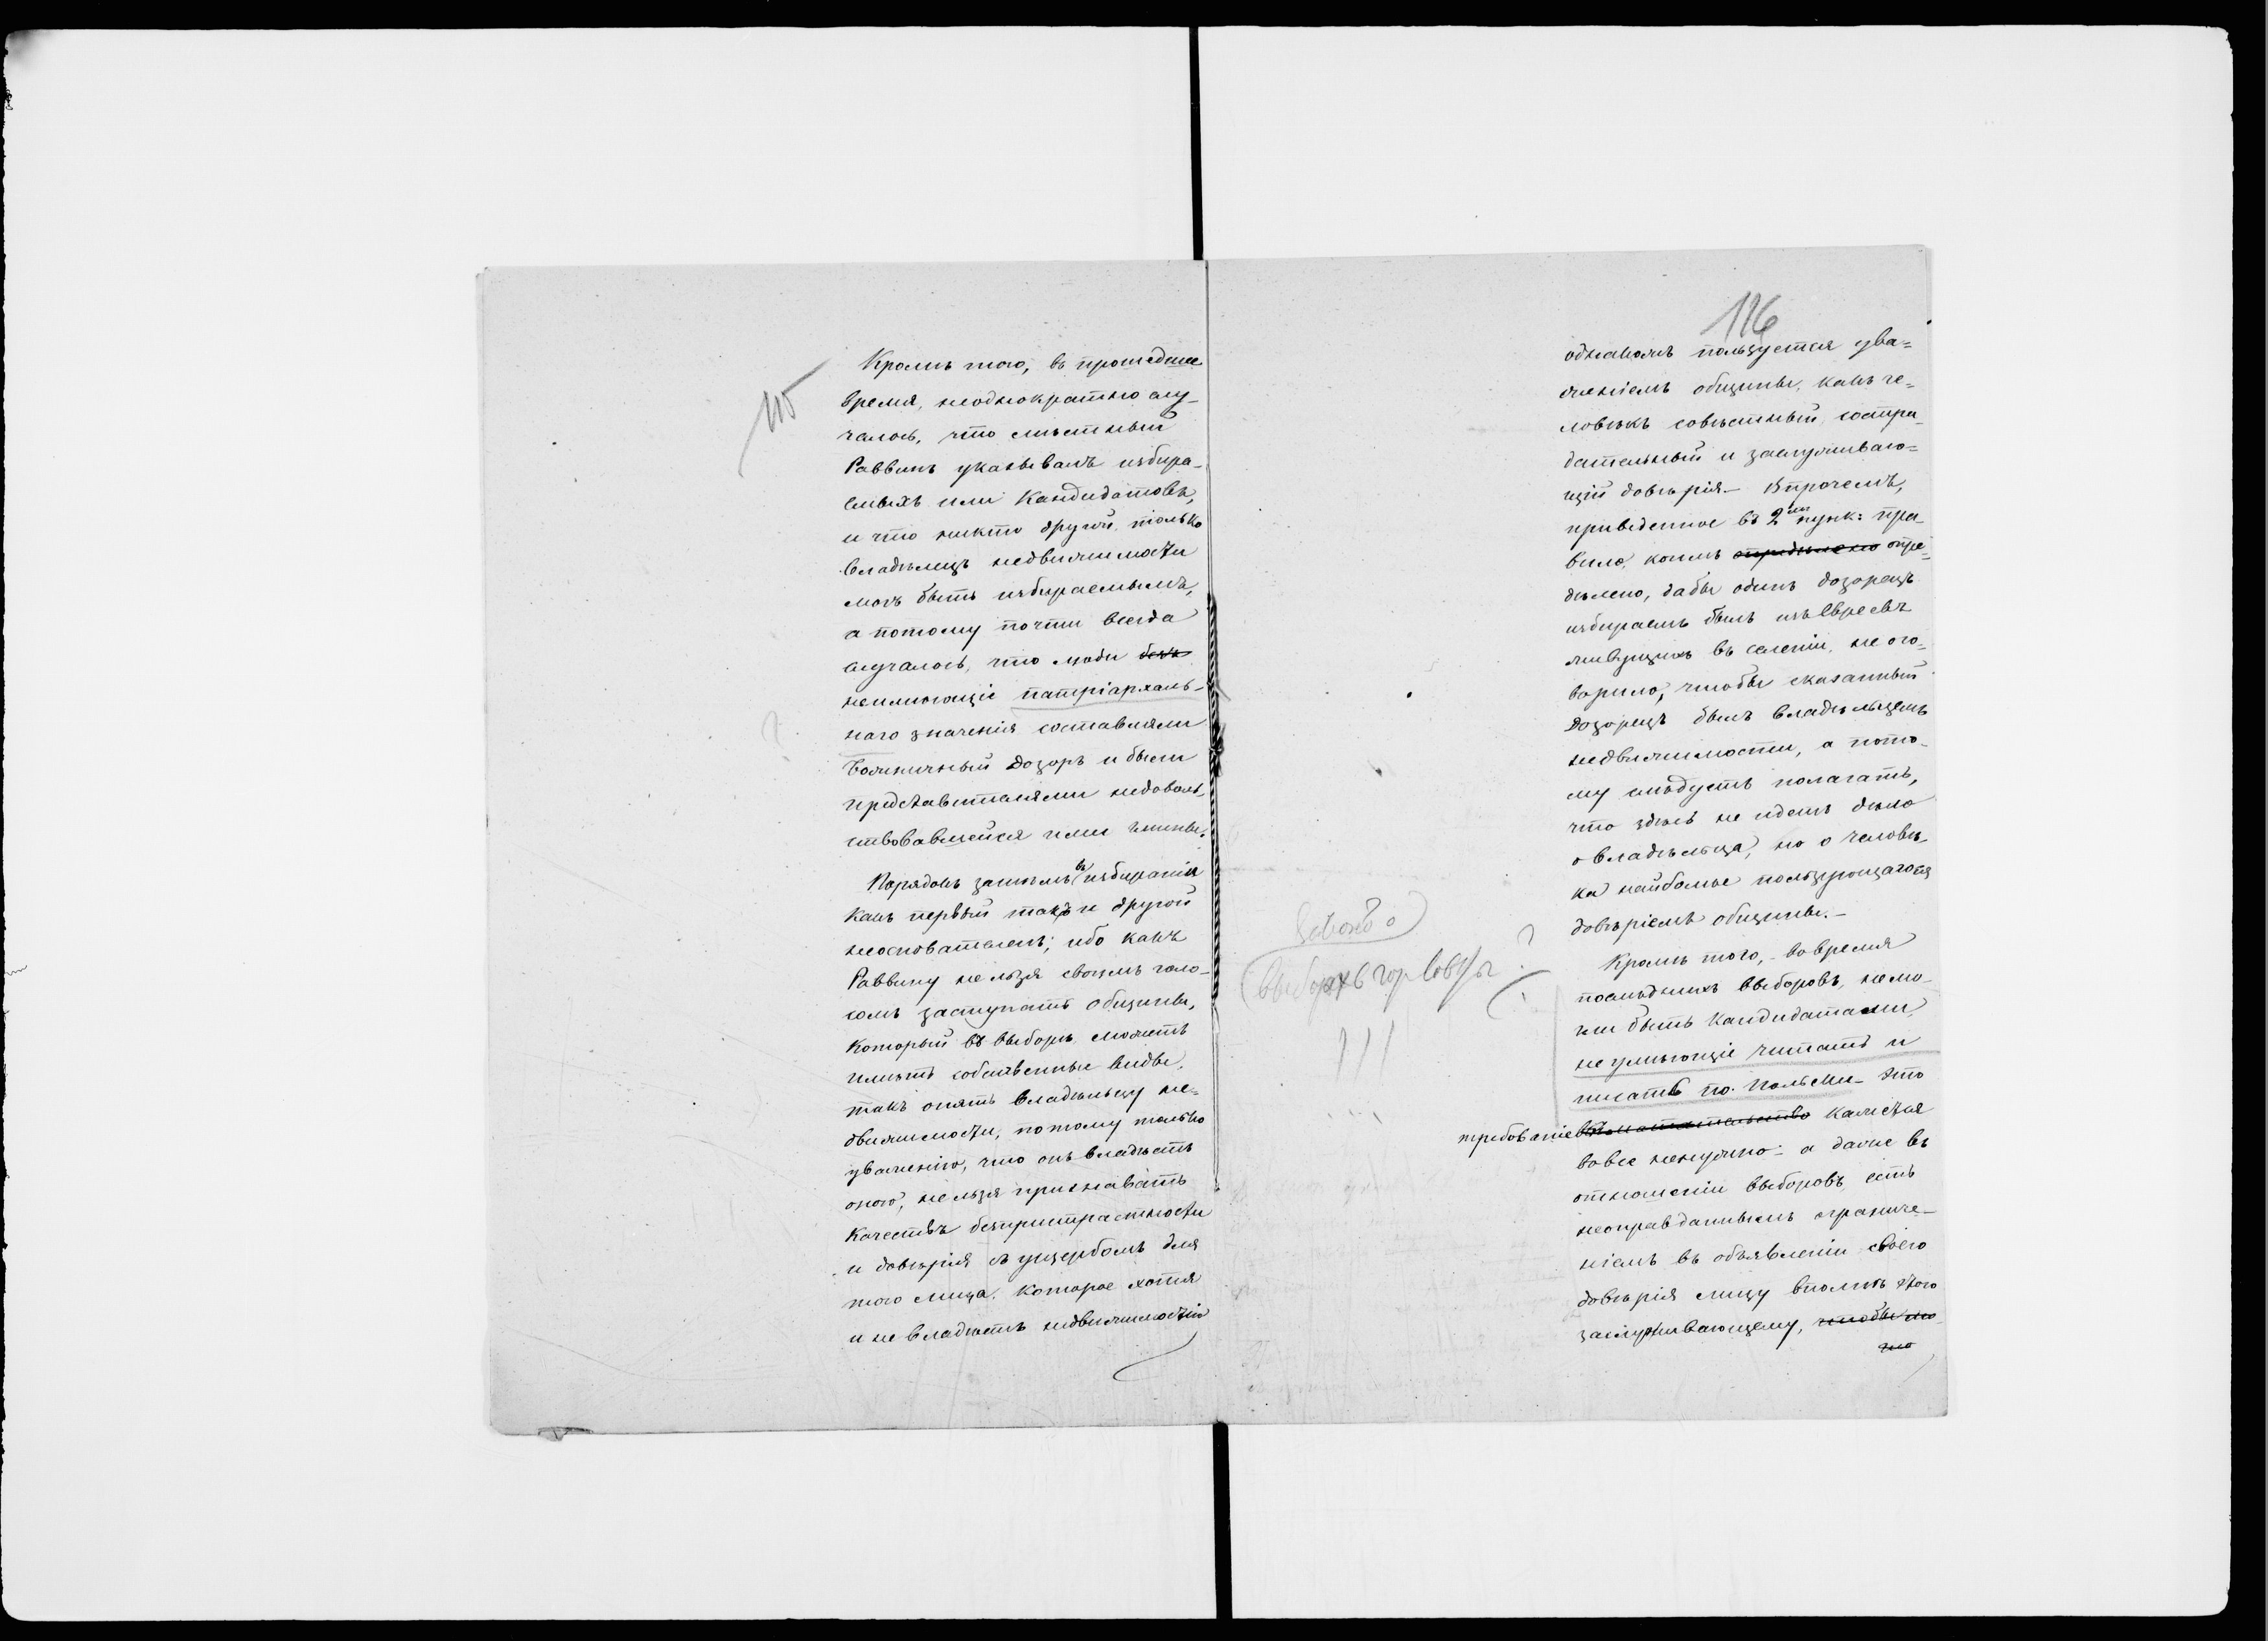 115
Кромѣ того, въ прошедшее
время, неоднократно слу-
чалось, что мѣстный
Раввинъ указывалъ избира-
емыхъ или Кандидатовъ,
и что никто другой, только
владѣлецъ недвижимости
могъ быть избираемымъ,
а потому почти всегда
случалось, что люди безъ
неимѣющіе патріархаль-
наго значенія составляли
божничный Дозоръ и были
представителями недоволь-
ствовавшейся ими гмины.
Порядокъ затѣмъ въ избираніи
какъ первый такъ и другой
неоснователенъ; ибо какъ
Раввину нельзя своимъ голо-
сомъ заступать общины,
который въ выборѣ можетъ
имѣть собственные виды,
такъ опять владѣльцу не-
движимости, потому только
уваженію, что онъ владѣетъ
оною, нельзя признавать
качествъ безпристрастности
и довѣрія съ ущербомъ для
того лица, которое хотя
и не владѣетъ недвижимостію
116
однакожъ пользуется ува=
женіемъ общины, какъ че=
ловѣкъ совѣстный, состра-
дательный и заслуживаю=
щій довѣрія.— Впрочемъ,
приведенное въ 2мъ пунк: пра-
вило, коимъ опредѣлено опре=
дѣлено, дабы одинъ дозорецъ
избираемъ былъ изъ Евреевъ
живущихъ въ селеніи, не ого=
ворило, чтобы сказанный
Дозорецъ былъ владѣльцемъ
недвижимости, а пото-
му слѣдуетъ полагать,
что здѣсь не идетъ дѣло
о владѣльца, но о человѣ-
ка наиболѣе пользующагося
довѣріемъ общины.—
Кромѣ того,- во время
послѣднихъ выборовъ, немо-
гли быть Кандидатами
не умѣющіе читать и
писать по-польски— Это
требованіе кажется
вовсе ненужно- а даже въ
отношеніи выборовъ, есть
неоправданнымъ ограниче-
ніемъ въ объявленіи своего
довѣрія лицу вполнѣ этого
заслуживающему, чтобы мо-
гло
о
выборахъ
?